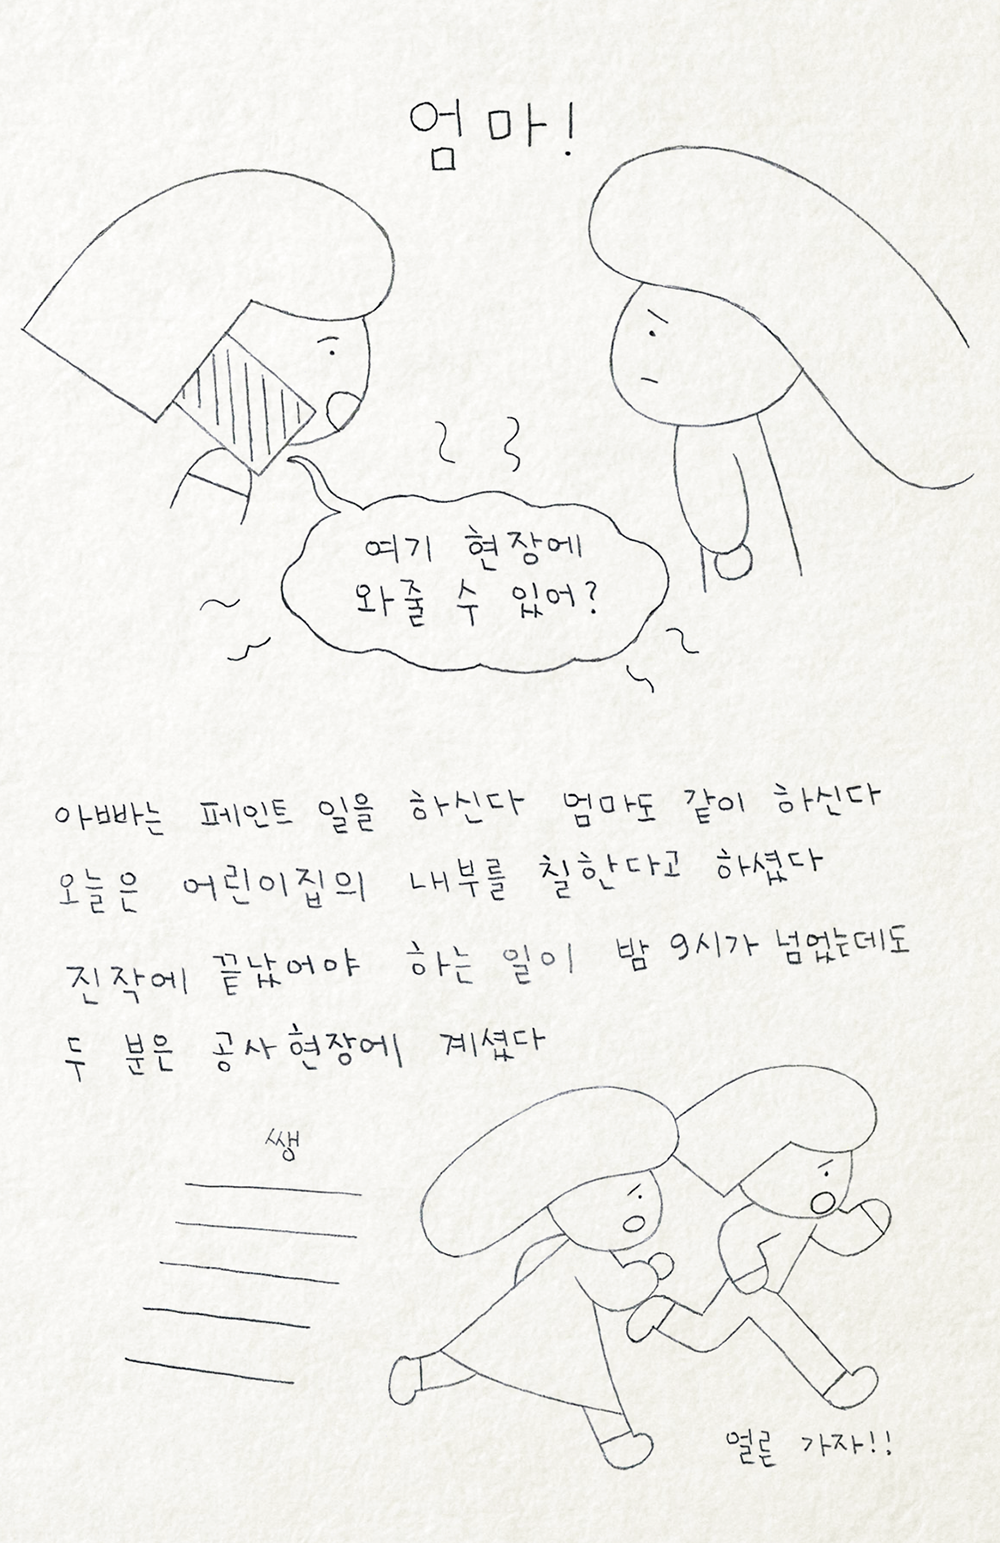 엄마!
여기 현장에
와줄 수 있어?
아빠는 페인트 일을 하신다 엄마도 같이 하신다
오늘은 어린이집의 내부를 칠한다고 하셨다
진작에 끝났어야 하는 일이 밤 9시가 넘었는데도
두 분은 공사현장에 계셨다
쌩
얼른 가자!!